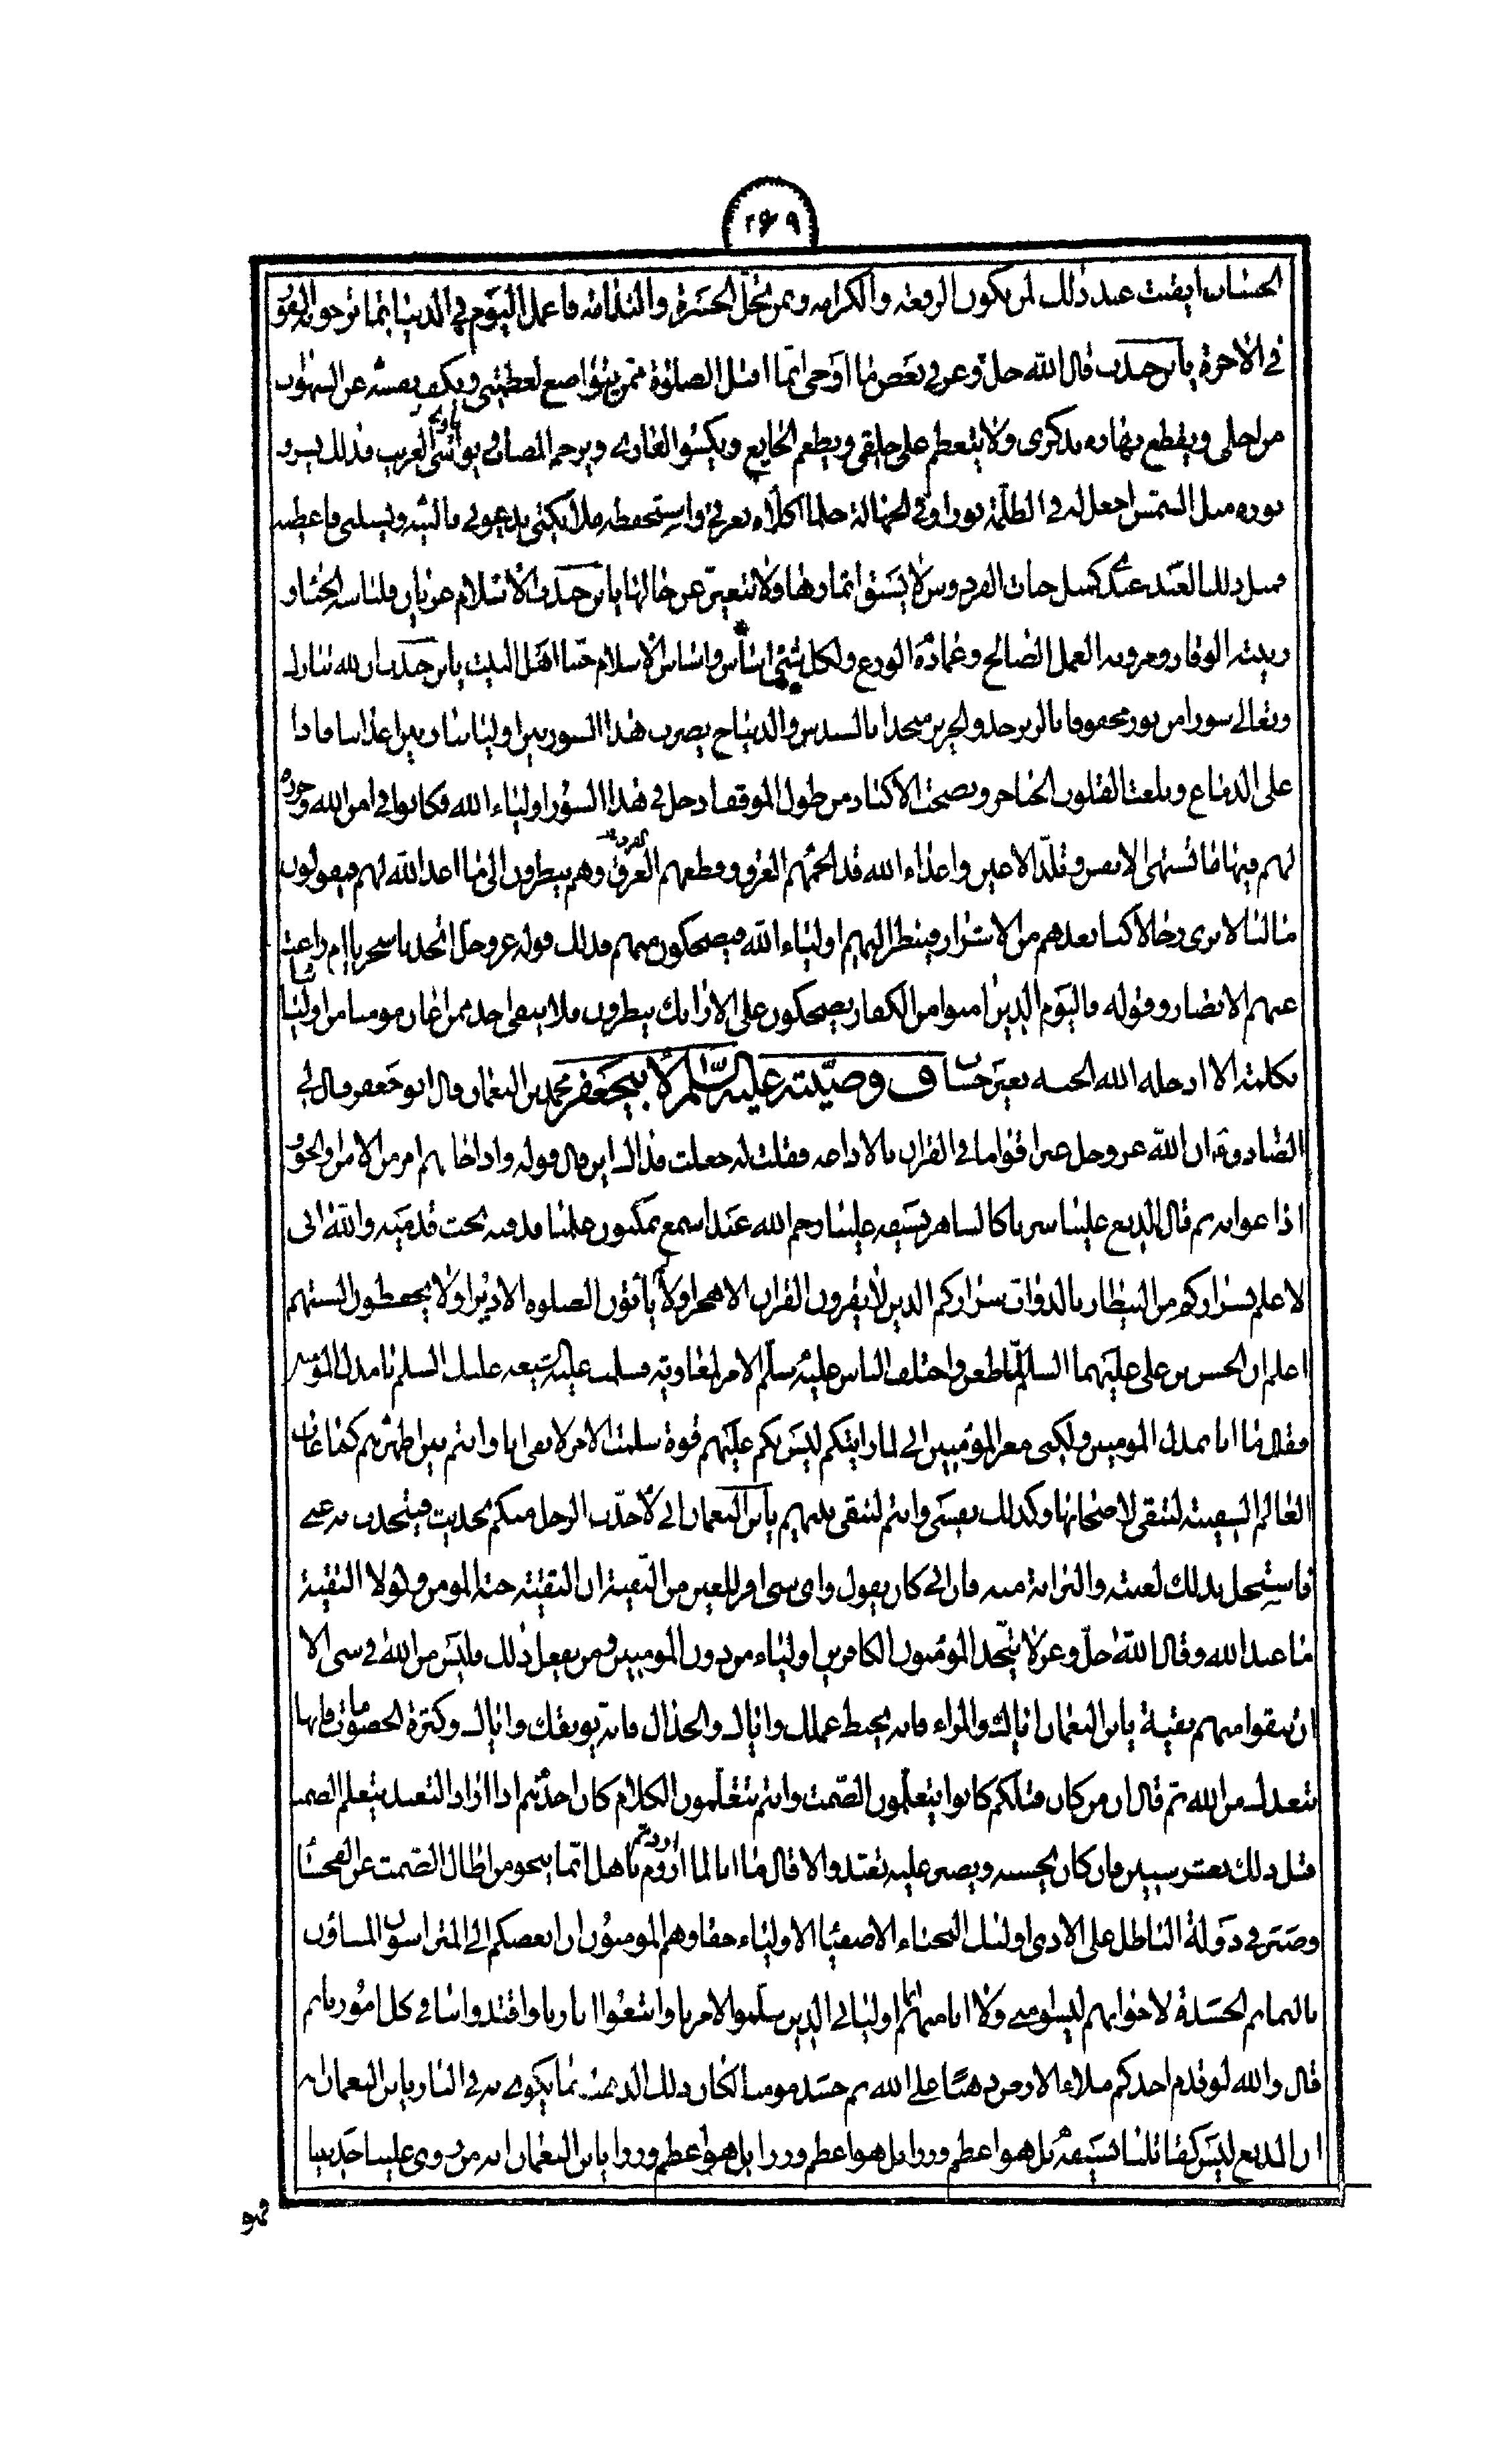 ٢٦٩
الحساب ايقنت عند ذلك لمن يكون الرفعة والكرامة وبمن تحل الحسرة والندامة فاعمل اليوم في الدنيا بما ترجو به الفوز
في الاخرة يابن جندب قال الله جل وعز في بعض ما اوحى انما اقبل الصلوة ممن يتواضع لعظمتي ويكف نفسه عن الشهوات
من اجلي ويقطع نهاره بذكري ولا يتعظم على خلقي ويطعم الجايع ويكسو العاري ويرحم المصاب ويؤاسي الغريب فذلك يشرق
نوره مثل الشمس اجعل له في الظلمة نورا وفي الجهالة حلما اكلاه بعزتي واستحفظه ملائكتي يدعوني فالبيه ويسئلني فاعطيه
فمثل ذلك العبد عندي كمثل جنات الفردوس لا يسبق اثمارها ولا تتغير عن حالها يابن جندب الاسلام عريان فلباسه الحياء و
زينته الوقار ومروءته العمل الصالح وعماده الورع ولكل شيء اساس واساس الاسلام حبنا اهل البيت يابن جندب ان لله تبارك
وتعالى سورا من نور محفوفا بالزبرجد والحرير منجدا بالسندس والديباج يضرب هذا السور بين اوليائنا وبين اعدائنا فاذا
غلى الدماغ وبلغت القلوب الحناجر ونضجت الاكباد من طول الموقف ادخل في هذا السور اولياء الله فكانوا في امن الله وحرزه
لهم فيها ما تشتهى الانفس وتلذ الاعين واعداء الله قد الجمهم العرق وقطعهم الفرق وهم ينظرون الى ما اعد الله لهم فيقولون
ما لنا لا نرى رجالا كنا نعدهم من الاشرار فينظر اليهم اولياء الله فيضحكون منهم فذلك قوله عز وجل اتخذناهم سخريا ام زاغت
عنهم الابصار وقوله فاليوم الذين امنوا من الكفار يضحكون على الارائك ينظرون فلا يبقى احد ممن اعان مؤمنا من اوليائنا
بكلمة الا ادخله الله الجنة بغير حساب ف وصيته عليه السلم لابيجعفر محمد بن النعمان قال ابو جعفر قال لي
الصادق ع ان الله عز وجل عير اقواما في القران بالاذاعة فقلت له جعلت فداك اين قال قال قوله واذا جاءهم امر من الامن او الخوف
اذاعوا به ثم قال المذيع علينا سرنا كالشاهر بسيفه علينا رحم الله عبدا سمع بمكنون علمنا فدفنه تحت قدميه والله اني
لاعلم بشراركم من البيطار بالدواب شراركم الذين لا يقرؤن القران الا هجرا ولا يأتون الصلوة الا دبرا ولا يحفظون السنتهم
اعلم ان الحسن بن علي عليهما السلم لما طعن واختلف الناس عليه سلم الامر لمعاوية فسلمت عليه الشيعة عليك السلم يا مذل المؤمنين
فقال ما انا بمذل المؤمنين ولكني معز المؤمنين اني لما رايتكم ليس بكم عليهم قوة سلمت الامر لابقى انا وانتم بين اظهرهم كما عاب
العالم السفينة لتبقى لاصحابها وكذلك نفسي وانتم لنبقى بينهم يابن النعمان اني لاحدث الرجل منكم بحديث فيتحدث به عني
فاستحل بذلك لعنته والبراءة منه فان ابي كان يقول واي شيء اقر للعين من التقية ان التقية جنة المؤمن ولولا التقية
ما عبد الله وقال الله جل وعز لا يتخذ المؤمنون الكافرين اولياء من دون المؤمنين ومن يفعل ذلك فليس من الله في شيء الا
ان تتقوا منهم تقية يابن النعمان اياك والمراء فانه يحبط عملك واياك والجدال فانه يوبقك واياك وكثرة الخصومات فانها
تبعدك من الله ثم قال ان من كان قبلكم كانوا يتعلمون الصمت وانتم تتعلمون الكلام كان احدهم اذا اراد التعبد يتعلم الصمت
قبل ذلك بعشر سنين فان كان يحسنه ويصبر عليه تعبد والا قال ما انا لما اروم باهل انما ينجو من اطال الصمت عن الفحشاء
وصبر في دولة الباطل على الاذى اولئك النجباء الاصفياء الاولياء حقا وهم المؤمنون ان ابغضكم الي المتراسون المشاؤن
بالنمائم الحسدة لاخوانهم ليسوا مني ولا انا منهم انما اوليائي الذين سلموا لامرنا واتبعوا اثارنا واقتدوا بنا في كل امورنا ثم
قال والله لو قدم احدكم ملاء الارض ذهبا على الله ثم حسد مؤمنا لكان ذلك الذهب مما يكوى به في النار يابن النعمان
ان المذيع ليس كقاتلنا بسيفه بل هو اعظم وزرا بل هو اعظم وزرا بل هو اعظم وزرا يابن النعمان انه من روى علينا حديثا
فهو